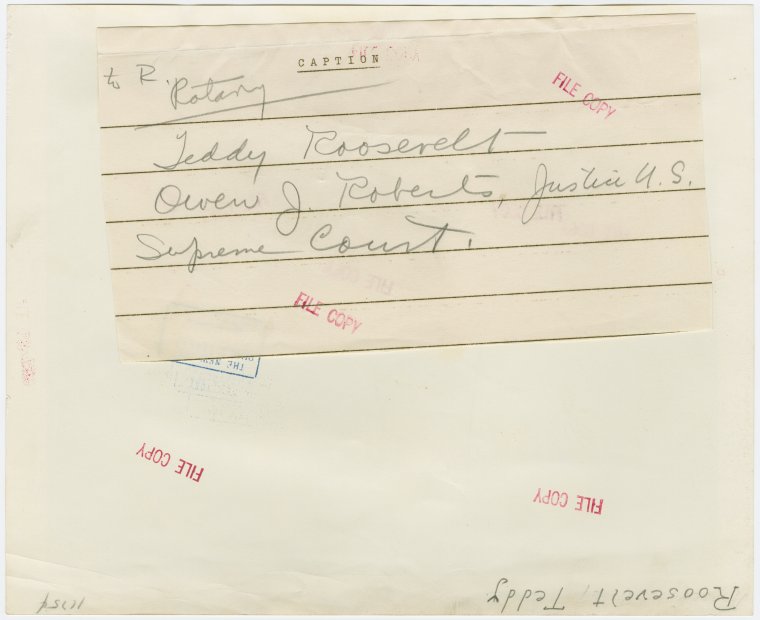 CAPTION
FILE COPY
to R.
Rotary
Teddy Roosevelt
Owen J. Roberts, Justice U.S.
Supreme Court.
FILE COPY
FILE COPY
THE NEW
FILE COPY
FILE COPY
Roosevelt, Teddy